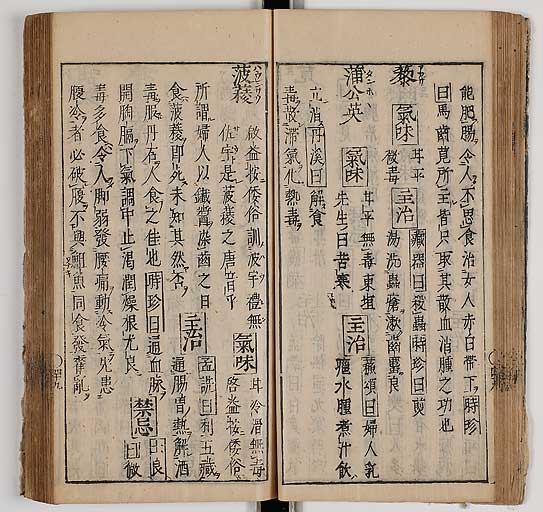 能肥腸令人不思食治女人赤白帶下時珍
曰馬齒莧所主皆只取其散血消腫之功也
藜 アカザ 氣味 甘平微毒 主治 藏器曰殺蟲時珍曰煎湯洗蟲瘡漱齒䘌良
蒲公英 タンホヽ 氣味 甘平無毒東垣先生曰苦寒 主治 蘇頌曰婦人乳癰水腫煮汁飲
立消丹溪曰解食
毒散滯氣化熱毒
菠薐 ハウレンサウ 啟益按倭俗訓波字禮無佐宇是菠薐之唐音乎 氣味 甘冷滑無毒啓益按倭俗
所謂婦人以鐵醬染齒之日
食菠薐即死未知其然否 主治 孟詵曰利五臟通腸胃熱解酒
毒服丹石人食之佳也時珍曰通血脉
開胸膈下氣調中止渴潤燥根尤良 禁忌 曰微
毒多食令人脚弱發腰痛動冷氣先患
腹冷者必破腹不與鱓魚同食發霍亂
四九